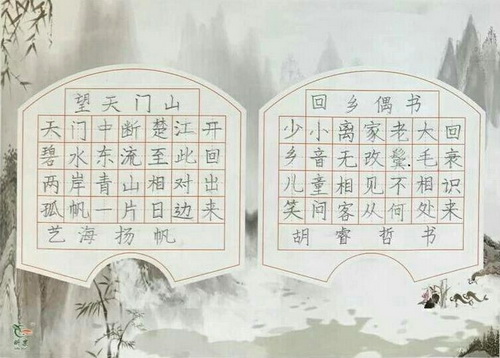 望天门山
天门中断楚江开
碧水东流至此回
两岸青山相对出
孤帆一片日边来
艺海扬帆
回乡偶书
少小离家老大回
乡音无改鬓毛衰
儿童相见不相识
笑问客从何处来
胡睿哲书